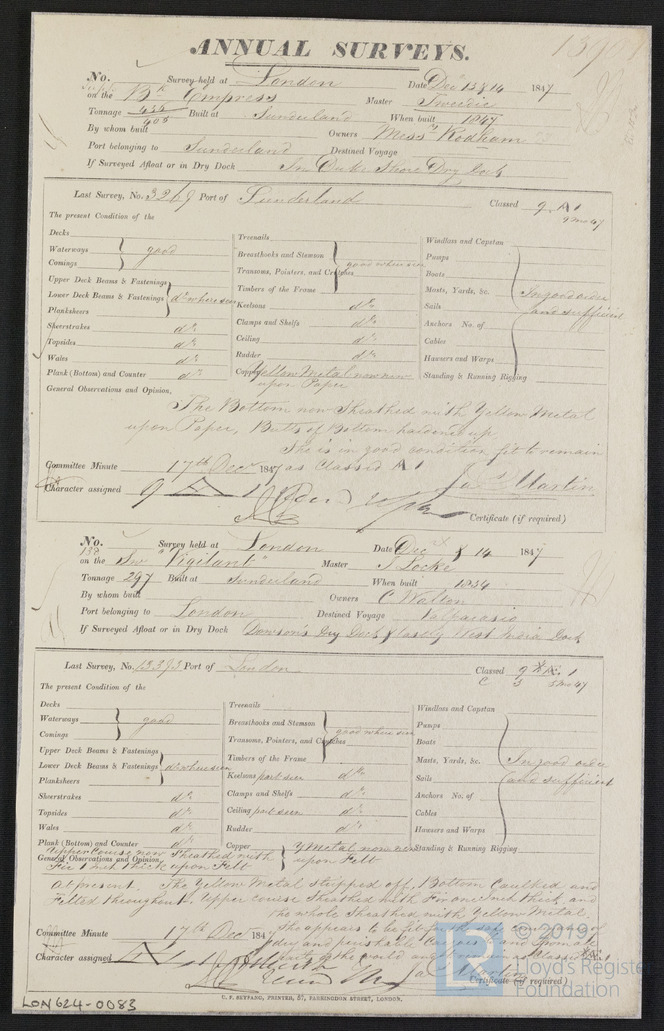 ANNUAL SURVEYS.
No. Survey held at London Date Decr 13 & 14 1847
on the Bk Empress Master Tweedie
Tonnage 434 Built at Sunderland When built 1847
400
By whom built Owners Messrs Rodham
Port belonging to Sunderland Destined Voyage
If Surveyed Afloat or in Dry Dock In Duke Shore Dry Dock
Last Survey, No. 3269 Port of Sunderland Classed 9 A1
9 mo 47
The present Condition of the
Decks
Waterways good
Comings
Upper Deck Beams & Fastenings
Lower Deck Beams & Fastenings do where seen
Planksheers
Sheerstrakes do
Topsides do
Wales do
Plank (Bottom) and Counter do
Treenails
Breasthooks and Stemson good where seen
Transoms, Pointers, and Crutches
Timbers of the Frame
Keelsons do
Clamps and Shelfs do
Ceiling do
Rudder do
Copper Yellow Metal now new
upon Paper
Windlass and Capstan
Pumps
Boats
Masts, Yards, &c. In good order
Sails and sufficient
Anchors No. of
Cables
Hawsers and Warps
Standing & Running Rigging
General Observations and Opinion,
The Bottom now Sheathed with Yellow Metal
upon Paper, Butts of Bottom hardened up
She is in good condition fit to remain
Committee Minute 17th Decr 1847 as Classed A1
Character assigned 9 A 1 Jas Martin
Certificate (if required)
No. 132 Survey held at London Date Dec & 14 1847
on the Sw "Vigilant" Master J Locke
Tonnage 297 Built at Sunderland When built 1834
By whom built Owners C Walton
Port belonging to London Destined Voyage Valparaiso
If Surveyed Afloat or in Dry Dock Dowson's Dry Dock & lastly West India Dock
Last Survey, No. 13393 Port of London Classed
5 mo 47
The present Condition of the
Decks
Waterways good
Comings
Upper Deck Beams & Fastenings
Lower Deck Beams & Fastenings do where seen
Planksheers
Sheerstrakes do
Topsides do
Wales do
Plank (Bottom) and Counter do
Upper Course now Sheathed with
Fir 1 Inch thick upon Felt
Treenails
Breasthooks and Stemson good where seen
Transoms, Pointers, and Crutches
Timbers of the Frame
Keelsons part seen do
Clamps and Shelfs do
Ceiling part seen do
Rudder do
Copper Y Metal now new
upon Felt
Windlass and Capstan
Pumps
Boats
Masts, Yards, &c. In good order
Sails and sufficient
Anchors No. of
Cables
Hawsers and Warps
Standing & Running Rigging
General Observations and Opinion,
At present. The Yellow Metal stripped off, Bottom Caulked and
Felted throughout, Upper course Sheathed with Fir one Inch thick and
the whole Sheathed with Yellow Metal.
She appears to be fit for the safe conveyance of
Committee Minute 17th Decr 1847
dry and perishable Cargoes to and from all
parts of the world
Character assigned Jas Martin
Certificate (if required)
C. F. SEYFANG, PRINTER, 57, FARRINGDON STREET, LONDON.
LON624-0083
© 2019
Lloyd's Register
Foundation